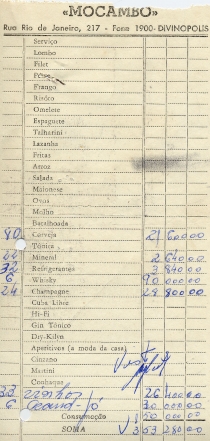 «MOCAMBO»
Rua Rio de Janeiro, 217 - Fone 1900 - DIVINÓPOLIS
Serviço
Lombo
Filet
Peixe
Frango
Risôto
Omelete
Espaguete
Talharini
Lazanha
Fritas
Arroz
Salada
Maionese
Ovos
Mollio
Bacalhoada
90 Cerveja
Tônica
22 Mineral 2 640 00
32 Refrigerantes 3 840 00
6 Whisky 90 000 00
24 Champagne 28 800 00
Cuba Libre
Hi-Fi
Gin Tônico
Dry-Kilyn
Aperitivos (a moda da casa)
Cinzano
Martini
Conhaque
33 26 400 00
6 30 000 00
Consumação 150 000 00
SOMA 353 280 00